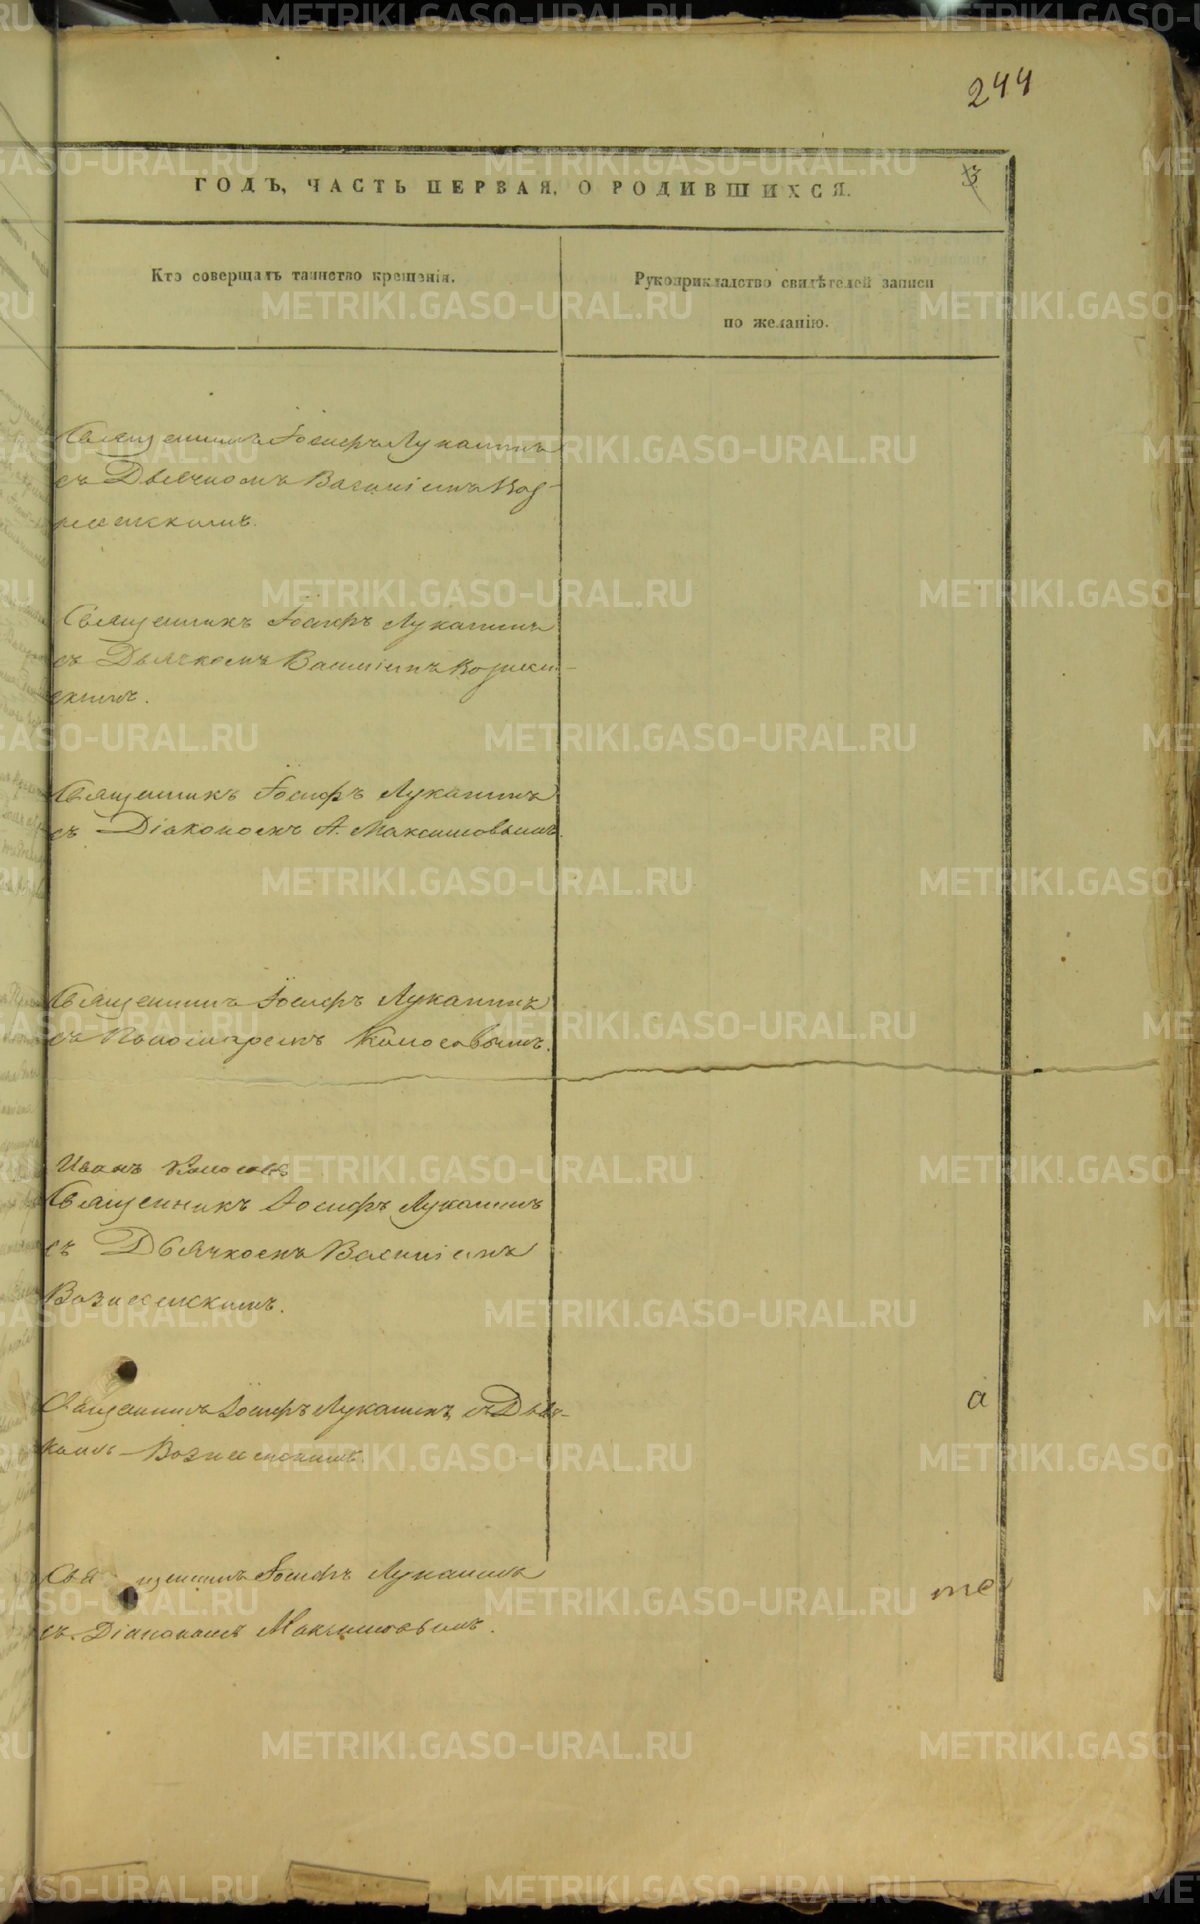 244
ГОДЪ, ЧАСТЬ ПЕРВАЯ, О РОДИВШИХСЯ.
3
Кто совершалъ таинство крещенія.
Рукоприкладство свидѣтелей записи
по желанію.
Священникъ Іосифъ Лукатинъ
съ Дьячкомъ Василіемъ Воз-
несенскимъ.
Священникъ Іосифъ Лукатинъ
съ Дьячкомъ Василіемъ Вознесен-
скимъ.
Священникъ Іосифъ Лукатинъ
съ Діакономъ А. Максимовымъ.
Священникъ Іосифъ Лукатинъ
съ Пономаремъ Колосовымъ.
Иванъ Колосовъ
Священникъ Іосифъ Лукатинъ
съ Дьячкомъ Василіемъ
Вознесенскимъ.
Священникъ Іосифъ Лукатинъ съ Дьяч-
комъ Вознесенскимъ.
а
Священникъ Іосифъ Лукатинъ
те
съ Діакономъ Максимовымъ.
METRIKI.GASO-URAL.RU